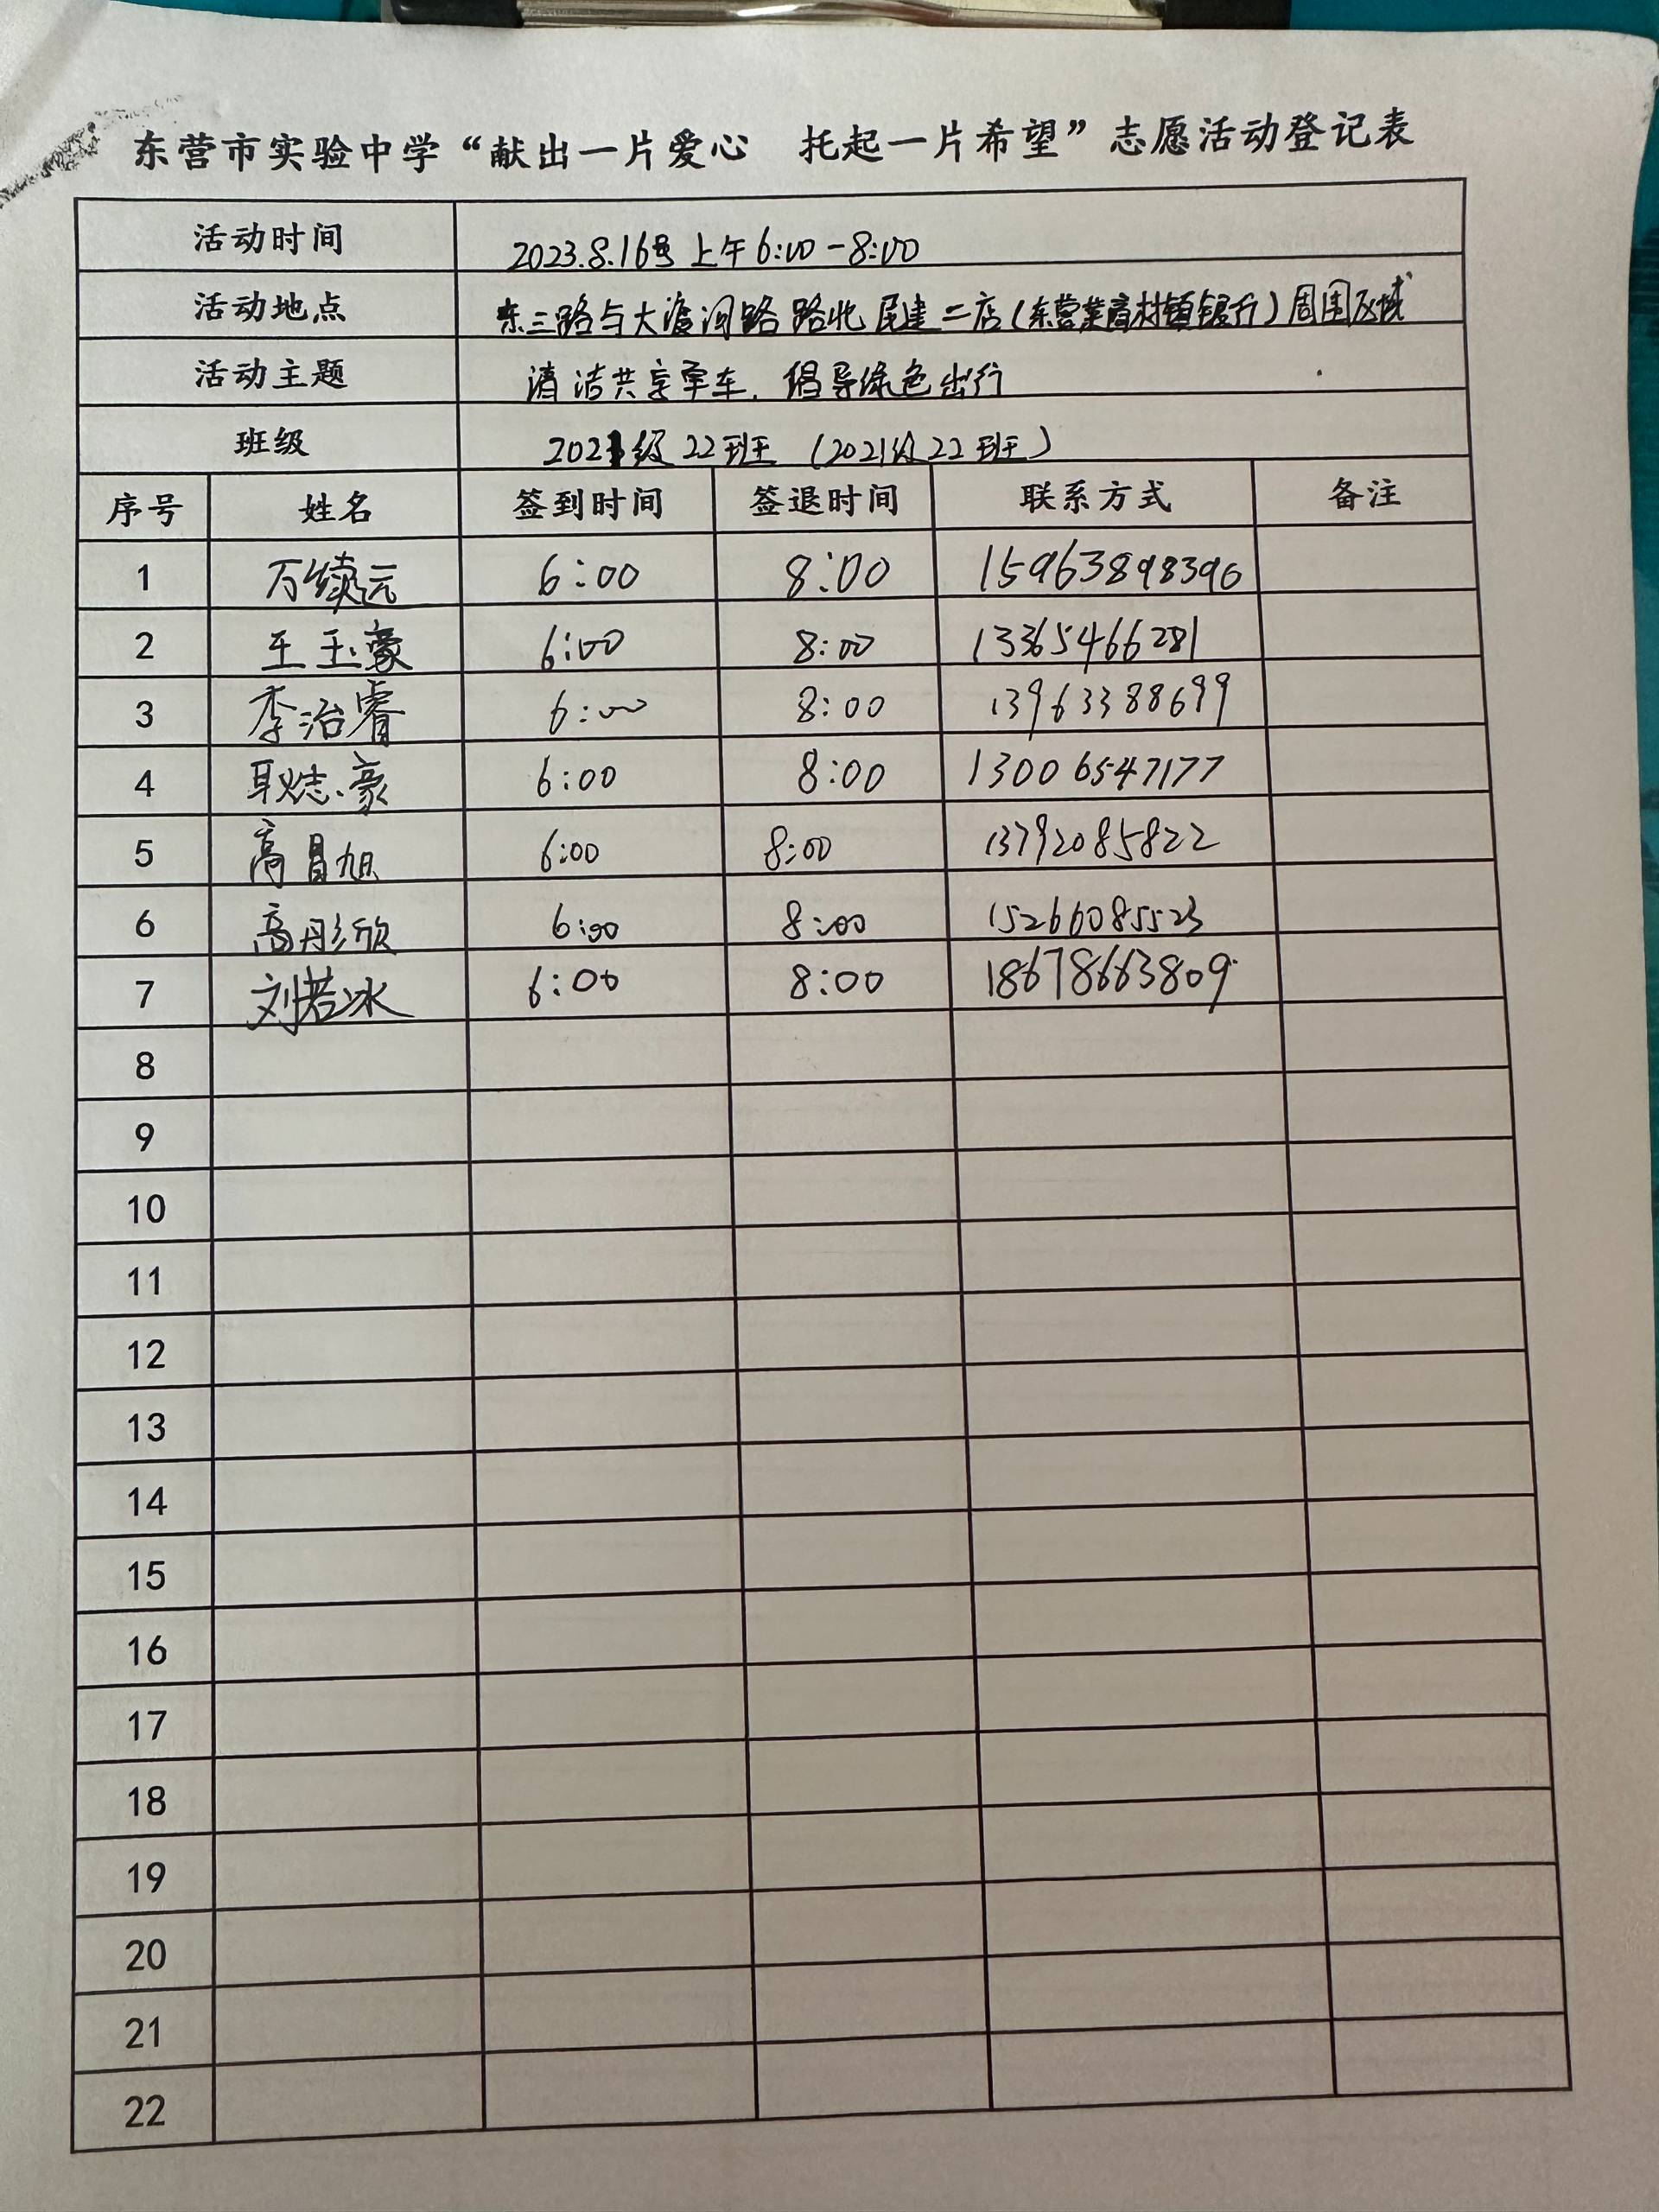 东营市实验中学“献出一片爱心 托起一片希望”志愿活动登记表
活动时间 2023.8.16号 上午6:00-8:00
活动地点 东三路与大渡河路路北民建二店(东营莱商村镇银行)周围区域
活动主题 清洁共享单车.倡导绿色出行
班级 2021级22班 (2021级22班)
序号 姓名 签到时间 签退时间 联系方式 备注
1 万续远 6:00 8:00 15963898396
2 王玉豪 6:00 8:00 13365466281
3 李治睿 6:00 8:00 13963388699
4 耿志豪 6:00 8:00 13006547177
5 高昌旭 6:00 8:00 13792085822
6 高彤欣 6:00 8:00 15266085523
7 刘若冰 6:00 8:00 18678663809
8
9
10
11
12
13
14
15
16
17
18
19
20
21
22